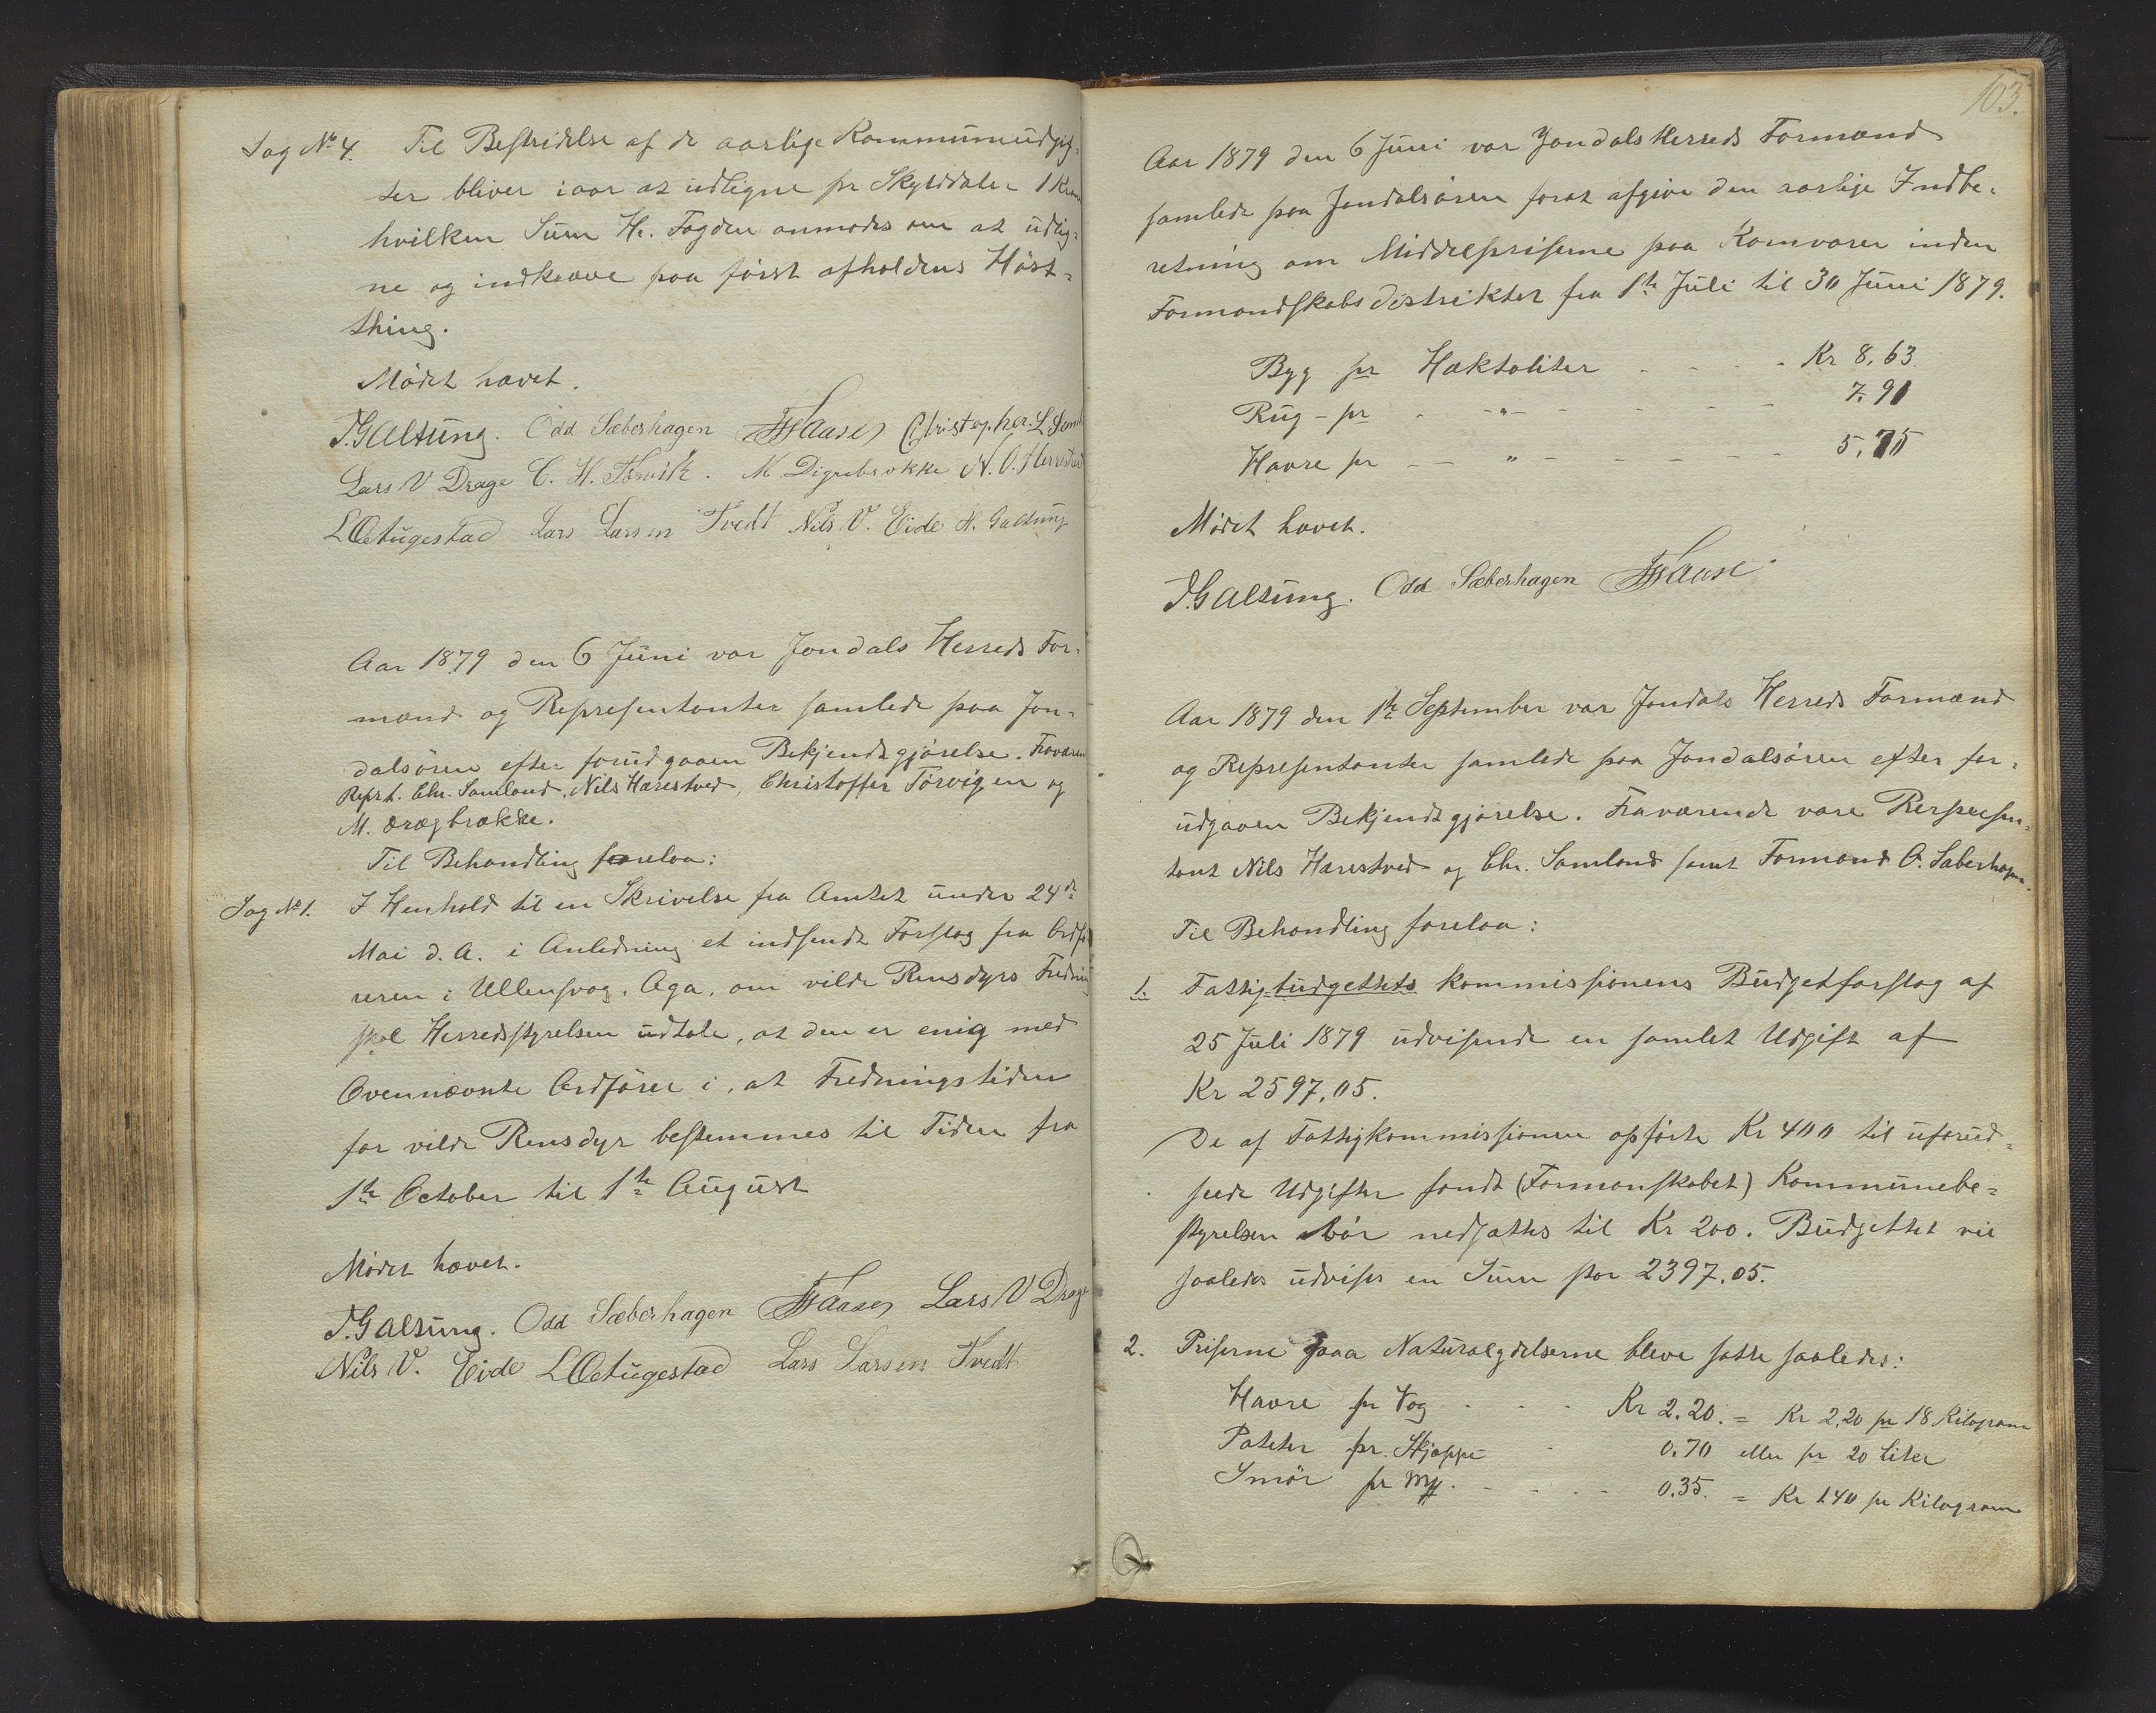 Sag No 4. Til Bestridelse af de aarlige Kommuneudgif-
ter bliver iaar at udligne pr Skylddaler 1 Krone
hvilken Sum Hr. Fogden anmodes om at udlig-
ne og indkræve paa først afholdens Høst-
thing.
Mødet hævet.
J. Galtung. Odd Sæberhagen Christopher L.
Lars V Drage C. H. Törvik. M Digrebrække N. O. Herrestved
L Qctugestad Lars Larsen Tvedt Nils V. Eide H. Galtung
Aar 1879 den 6 Juni var Jondals Herreds For-
mænd og Representanter samlede paa Jon-
dalsøren efter forudgaaen Bekjendtgjørelse. Fraværen
Reprt. Chr. Samland, Nils Hærestved, Christoffer Törvigen og
M. Drægbrække.
Til Behandling forelaa:
Sag No 1. I Henhold til en Skrivelse fra Amtet under 24de
Mai d. A. i Anledning et indsendt Forslag fra Ordfø
reren i Ullensvog, Aga, om vilde Rensdyrs Fredning
skal Herredsstyrelsen udtale, at den er enig med
Ovennævnte Ordfører i, at Fredningstiden
for vilde Rensdyr bestemmes til Tiden fra
1te October til 1te August
Mødet hævet.
J. Galtung. Odd Sæberhagen Lars V Drage
Nils V. Eide L Qctugestad Lars Larsen Tvedt
103.
Aar 1879 den 6 Juni var Jondals Herreds Formænd
samlede paa Jondalsøren forat afgive den aarlige Indbe-
retning om Middelpriserne paa Kornvarer inden
Formandskabsdistrikter fra 1te Juli til 30 Juni 1879.
Byg pr Hæktoliter - - - - Kr 8,63
Rug - pr - - " - - - - - - 7.91
Havre pr - - " - - - - - - 5,75
Mødet hævet.
J. Galtung. Odd Sæberhagen
Aar 1879 den 1te September var Jondals Herreds Formænd
og Representanter samlede paa Jondalsøren efter for-
udgaaen Bekjendtgjørelse. Fraværende vare Rerpresen-
tant Nils Hærestved og Chr. Samland samt Formand O. Saberhagen.
Til Behandling forelaa:
1. Fattigbudgettets kommissionens Budgetforslag af
25 Juli 1879 udvisende en samlet Udgift af
Kr 2597,05.
De af Fattigkommissionen opførte Kr 400 til uforud-
seede Udgifter fandt (Formanskabet) Kommunebe-
styrelsen bør nedsættes til Kr 200. Budgettet vil
saaledes udvises en Sum stor 2397,05.
2. Priserne paa Naturalydelserne bleve satte saaledes:
Havre pr Vog - - - Kr 2,20. = Kr 2,20 pr 18 Kilogram
Poteter pr. Skjæppe - 0.70 eller pr 20 Liter
Smør pr Mk. - - - - 0.35. = Kr 1.40 pr Kilogram